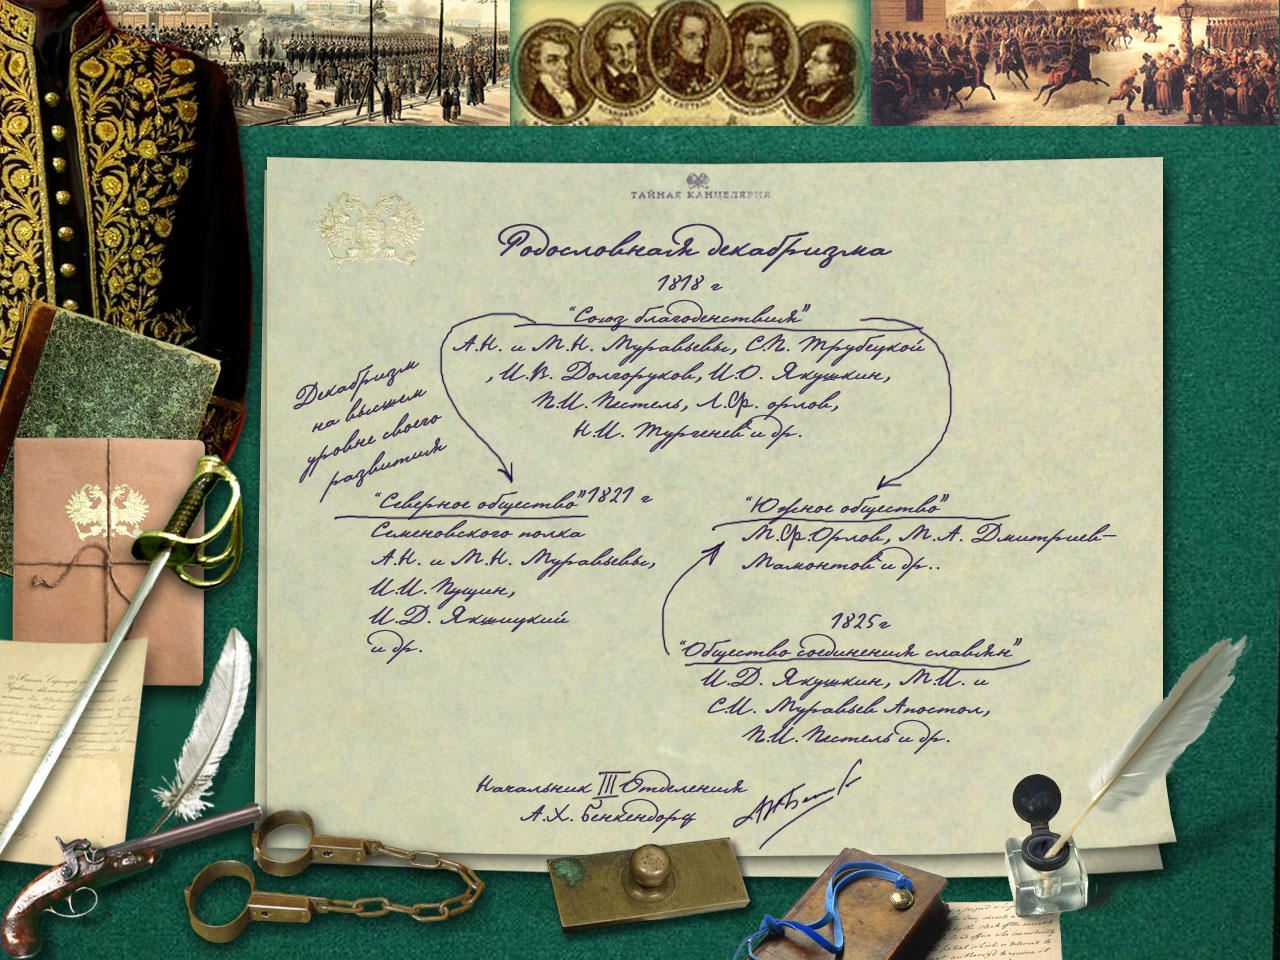 ТАЙНАЯ КАНЦЕЛЯРИЯ
Родословная декабризма
1818 г
"Союз благоденствия"
А.Н. и М.Н. Муравьевы, С.П. Трубецкой
, И.В. Долгоруков, И.О. Якушкин,
П.И. Пестель, Л.Ф. орлов,
Н.И. Тургенев и др.
Декабризм
на высшем
уровне своего
развития
"Северное общество" 1821 г
Семеновского полка
А.Н. и М.Н. Муравьевы,
И.И. Пущин,
И.Д. Якшицкий
и др.
"Южное общество"
М.Ф.Орлов, М.А. Дмитриев-
Мамонтов и др..
1825г
"Общество соединения славян"
И.Д. Якушкин, М.И. и
С.И. Муравьев Апостол,
П.И. Пестель и др.
Начальник III Отделения
А.Х. Бенкендорф